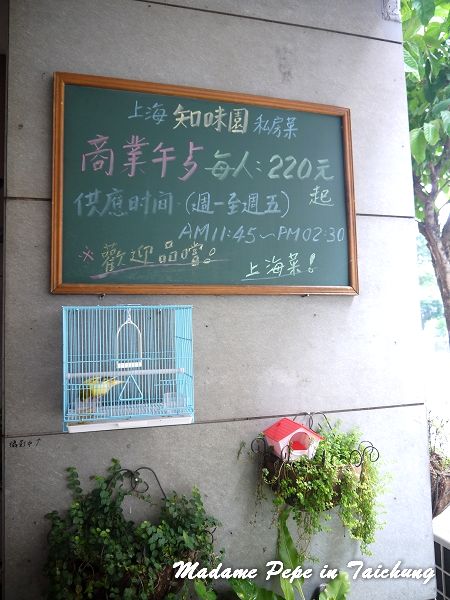 上海 知味園 私房菜
商業午占 每人：220元
起
供應时间．(週一至週五)
AM11:45～PM02:30
※歡迎品嚐！
上海菜！
Madame Pepe in Taichung